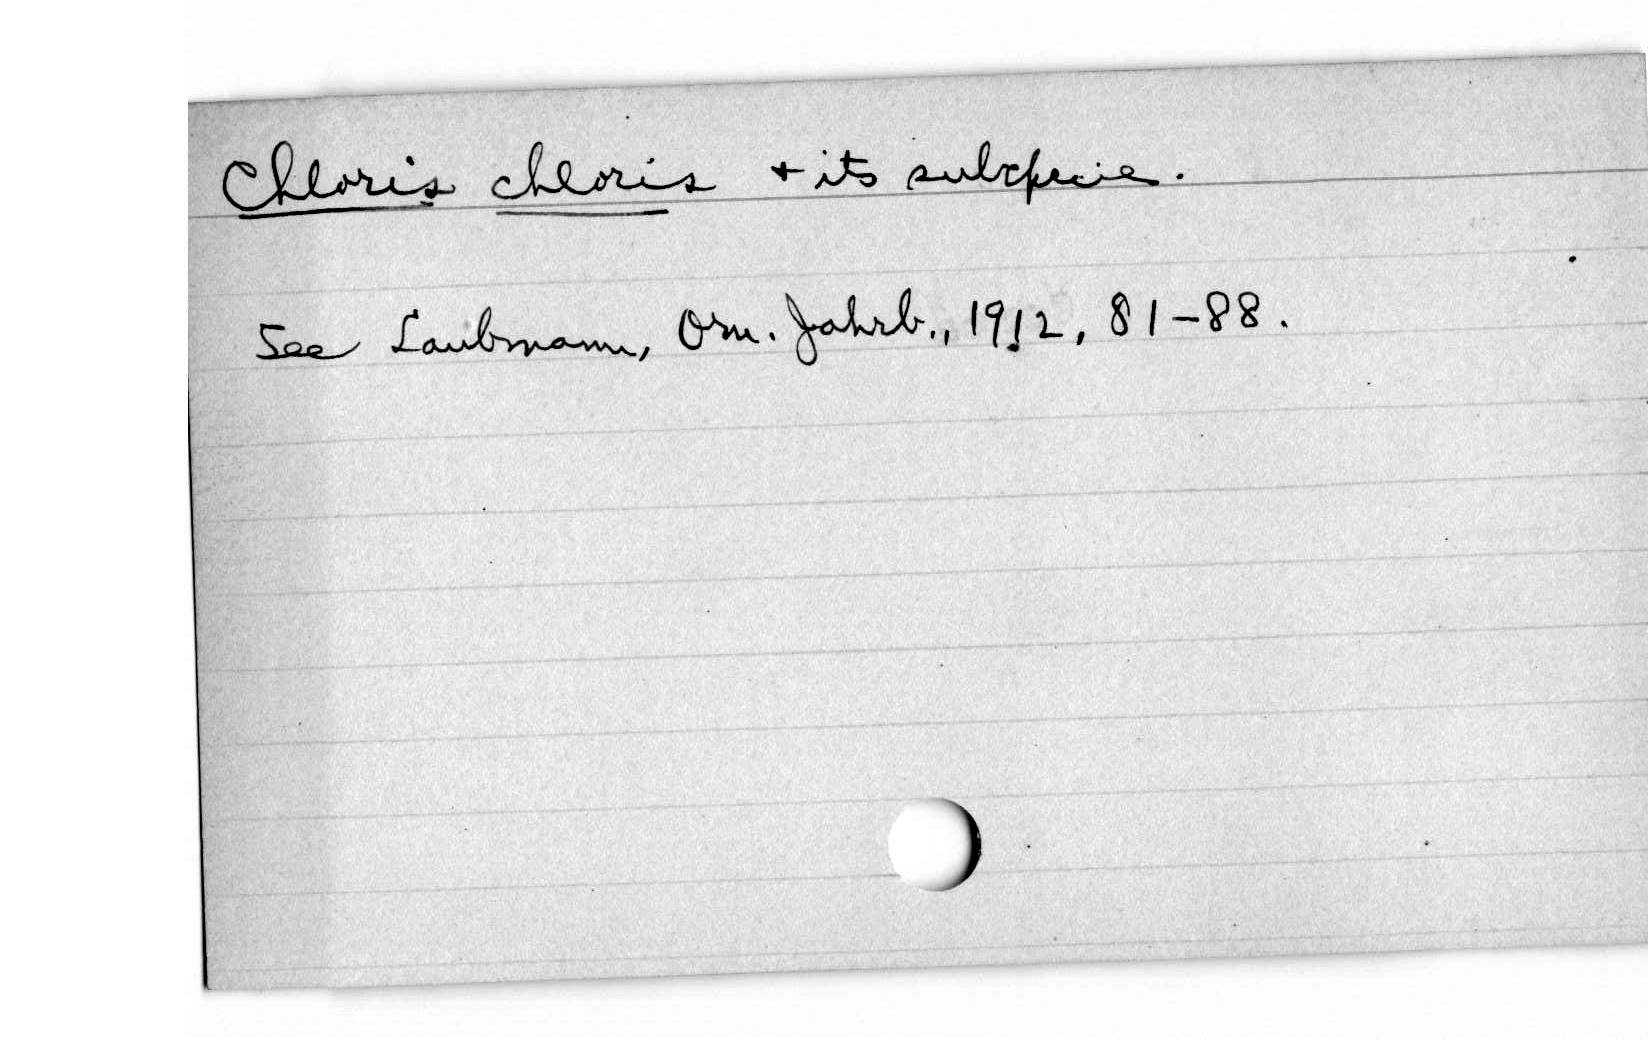 Chloris chloris + its subspecies.
See Laubmann, Orn. Jahrb., 1912, 81-88.